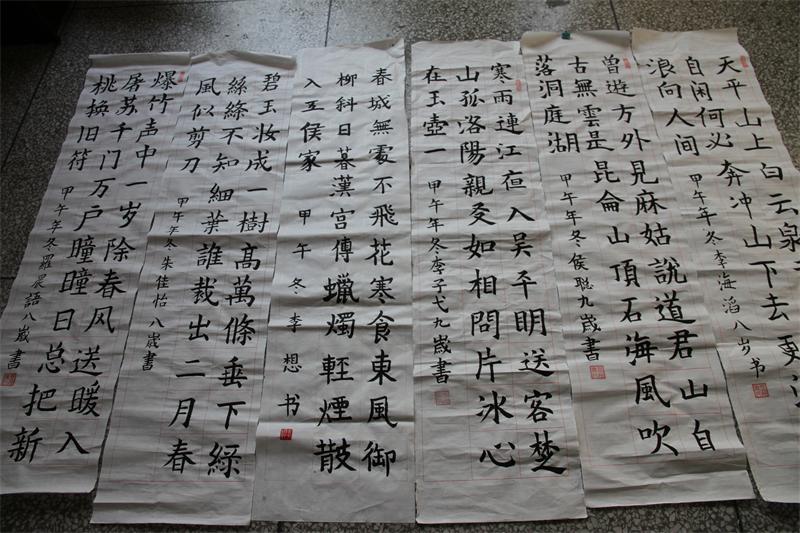 天平山上白云泉
自闲何必奔冲山下去更
浪向人间
甲午年冬李海滔八岁书
曾遊方外見麻姑說道君山自
古無雲是昆侖山頂石海風吹
落洞庭湖
甲午年冬侯聪九歲書
寒雨連江夜入吴平明送客楚
山孤洛陽親友如相問片冰心
在玉壺一
甲午年冬李子弋九歲書
春城無處不飛花寒食東風御
柳斜日暮漢宮傳蠟燭輕煙散
入五侯家
甲午冬李想书
碧玉妝成一樹高萬條垂下綠
絲絛不知細葉誰裁出二月春
風似剪刀
甲午年冬朱佳怡八歲書
爆竹声中一岁除春风送暖入
屠苏千门万户曈曈日总把新
桃换旧符
甲午年冬羅宸語八歲書